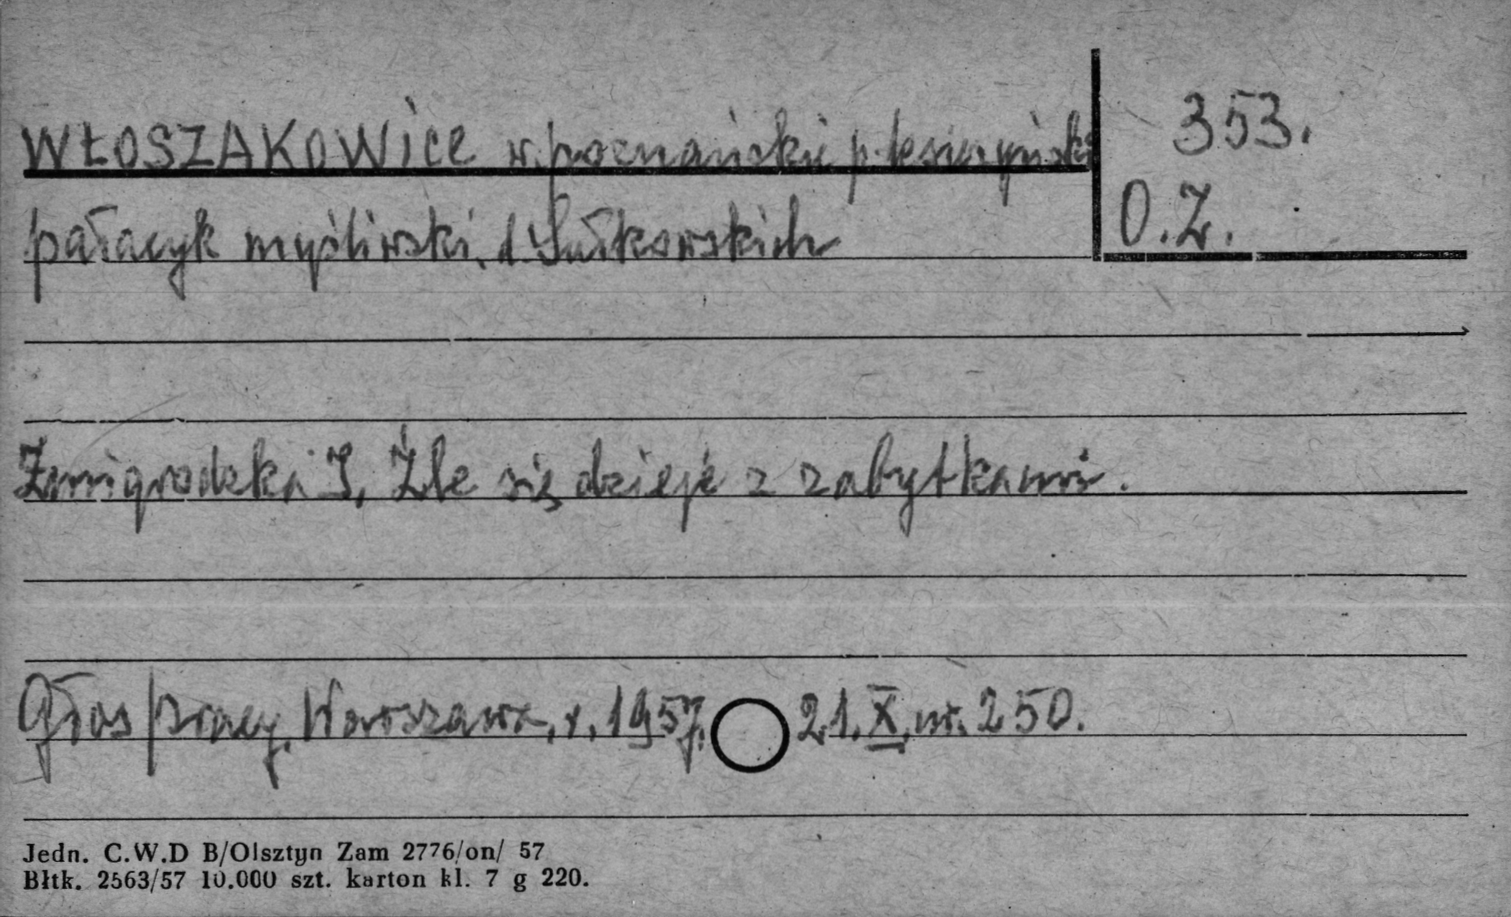 WŁOSZAKOWice w. poznańskie p. leszczyński
353.
O.Z.
pałacyk myśliwski, d. Sułkowskich
Żmigrodzka J, Źle się dzieje z zabytkami.
Głos Pracy, Warszawa, r. 1957, 21.X, nr. 250.
Jedn. C.W.D B/Olsztyn Zam 2776/on/ 57
Błtk. 2563/57 10.000 szt. karton kl. 7 g 220.